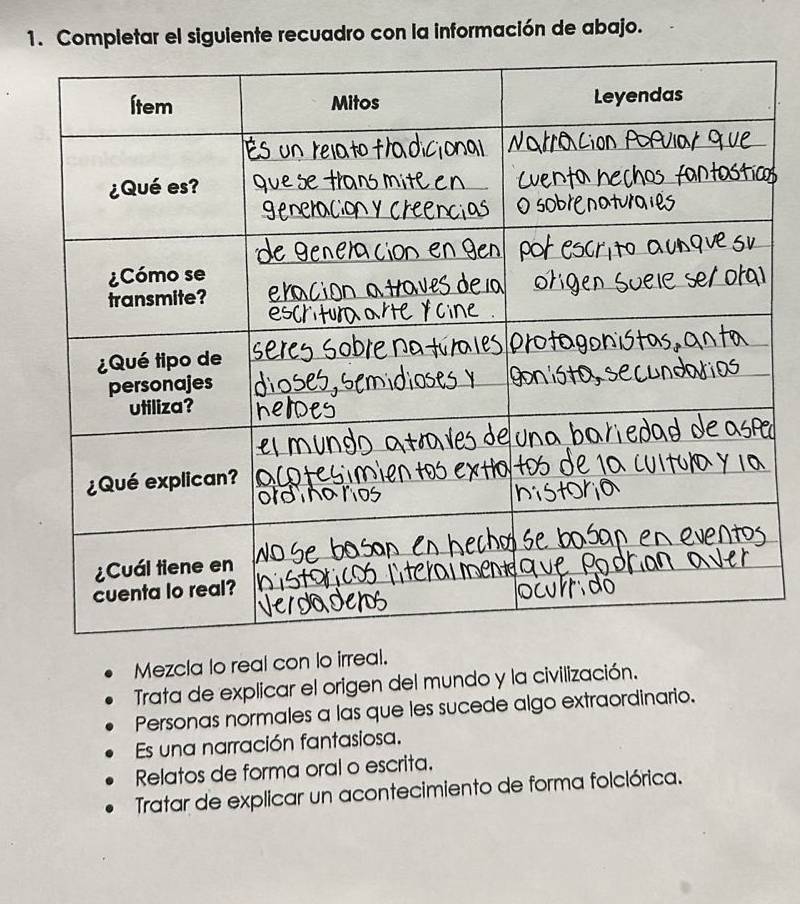 1. Completar el siguiente recuadro con la información de abajo.
Ítem
Mitos
Leyendas
¿Qué es?
Es un relato tradicional
que se trans mite en
generacion y creencias
Narracion Popular que
cuenta hechos fantasticos
o sobrenaturales
¿Cómo se
transmite?
de generacion en gen
eracion a traves de la
escritura arte y cine.
por escrito aunque su
origen suele ser oral
¿Qué tipo de
personajes
utiliza?
seres sobrenaturales
dioses, semidioses y
heroes
protagonistas, anta
gonista, secundarios
¿Qué explican?
el mundo a traves de
acotesimientos extra
ordinarios
una bariedad de aspec
tos de la cultura y la
historia
¿Cuál tiene en
cuenta lo real?
No se basan en hechos
historicos literalmente
verdaderos
se basan en eventos
que podrian aver
ocurrido
• Mezcla lo real con lo irreal.
• Trata de explicar el origen del mundo y la civilización.
• Personas normales a las que les sucede algo extraordinario.
• Es una narración fantasiosa.
• Relatos de forma oral o escrita.
• Tratar de explicar un acontecimiento de forma folclórica.